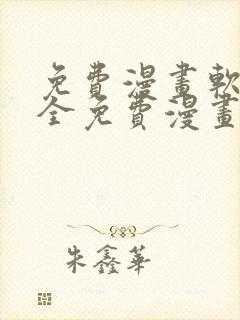 免費漫畫軟
全免費漫畫
朱鑫華